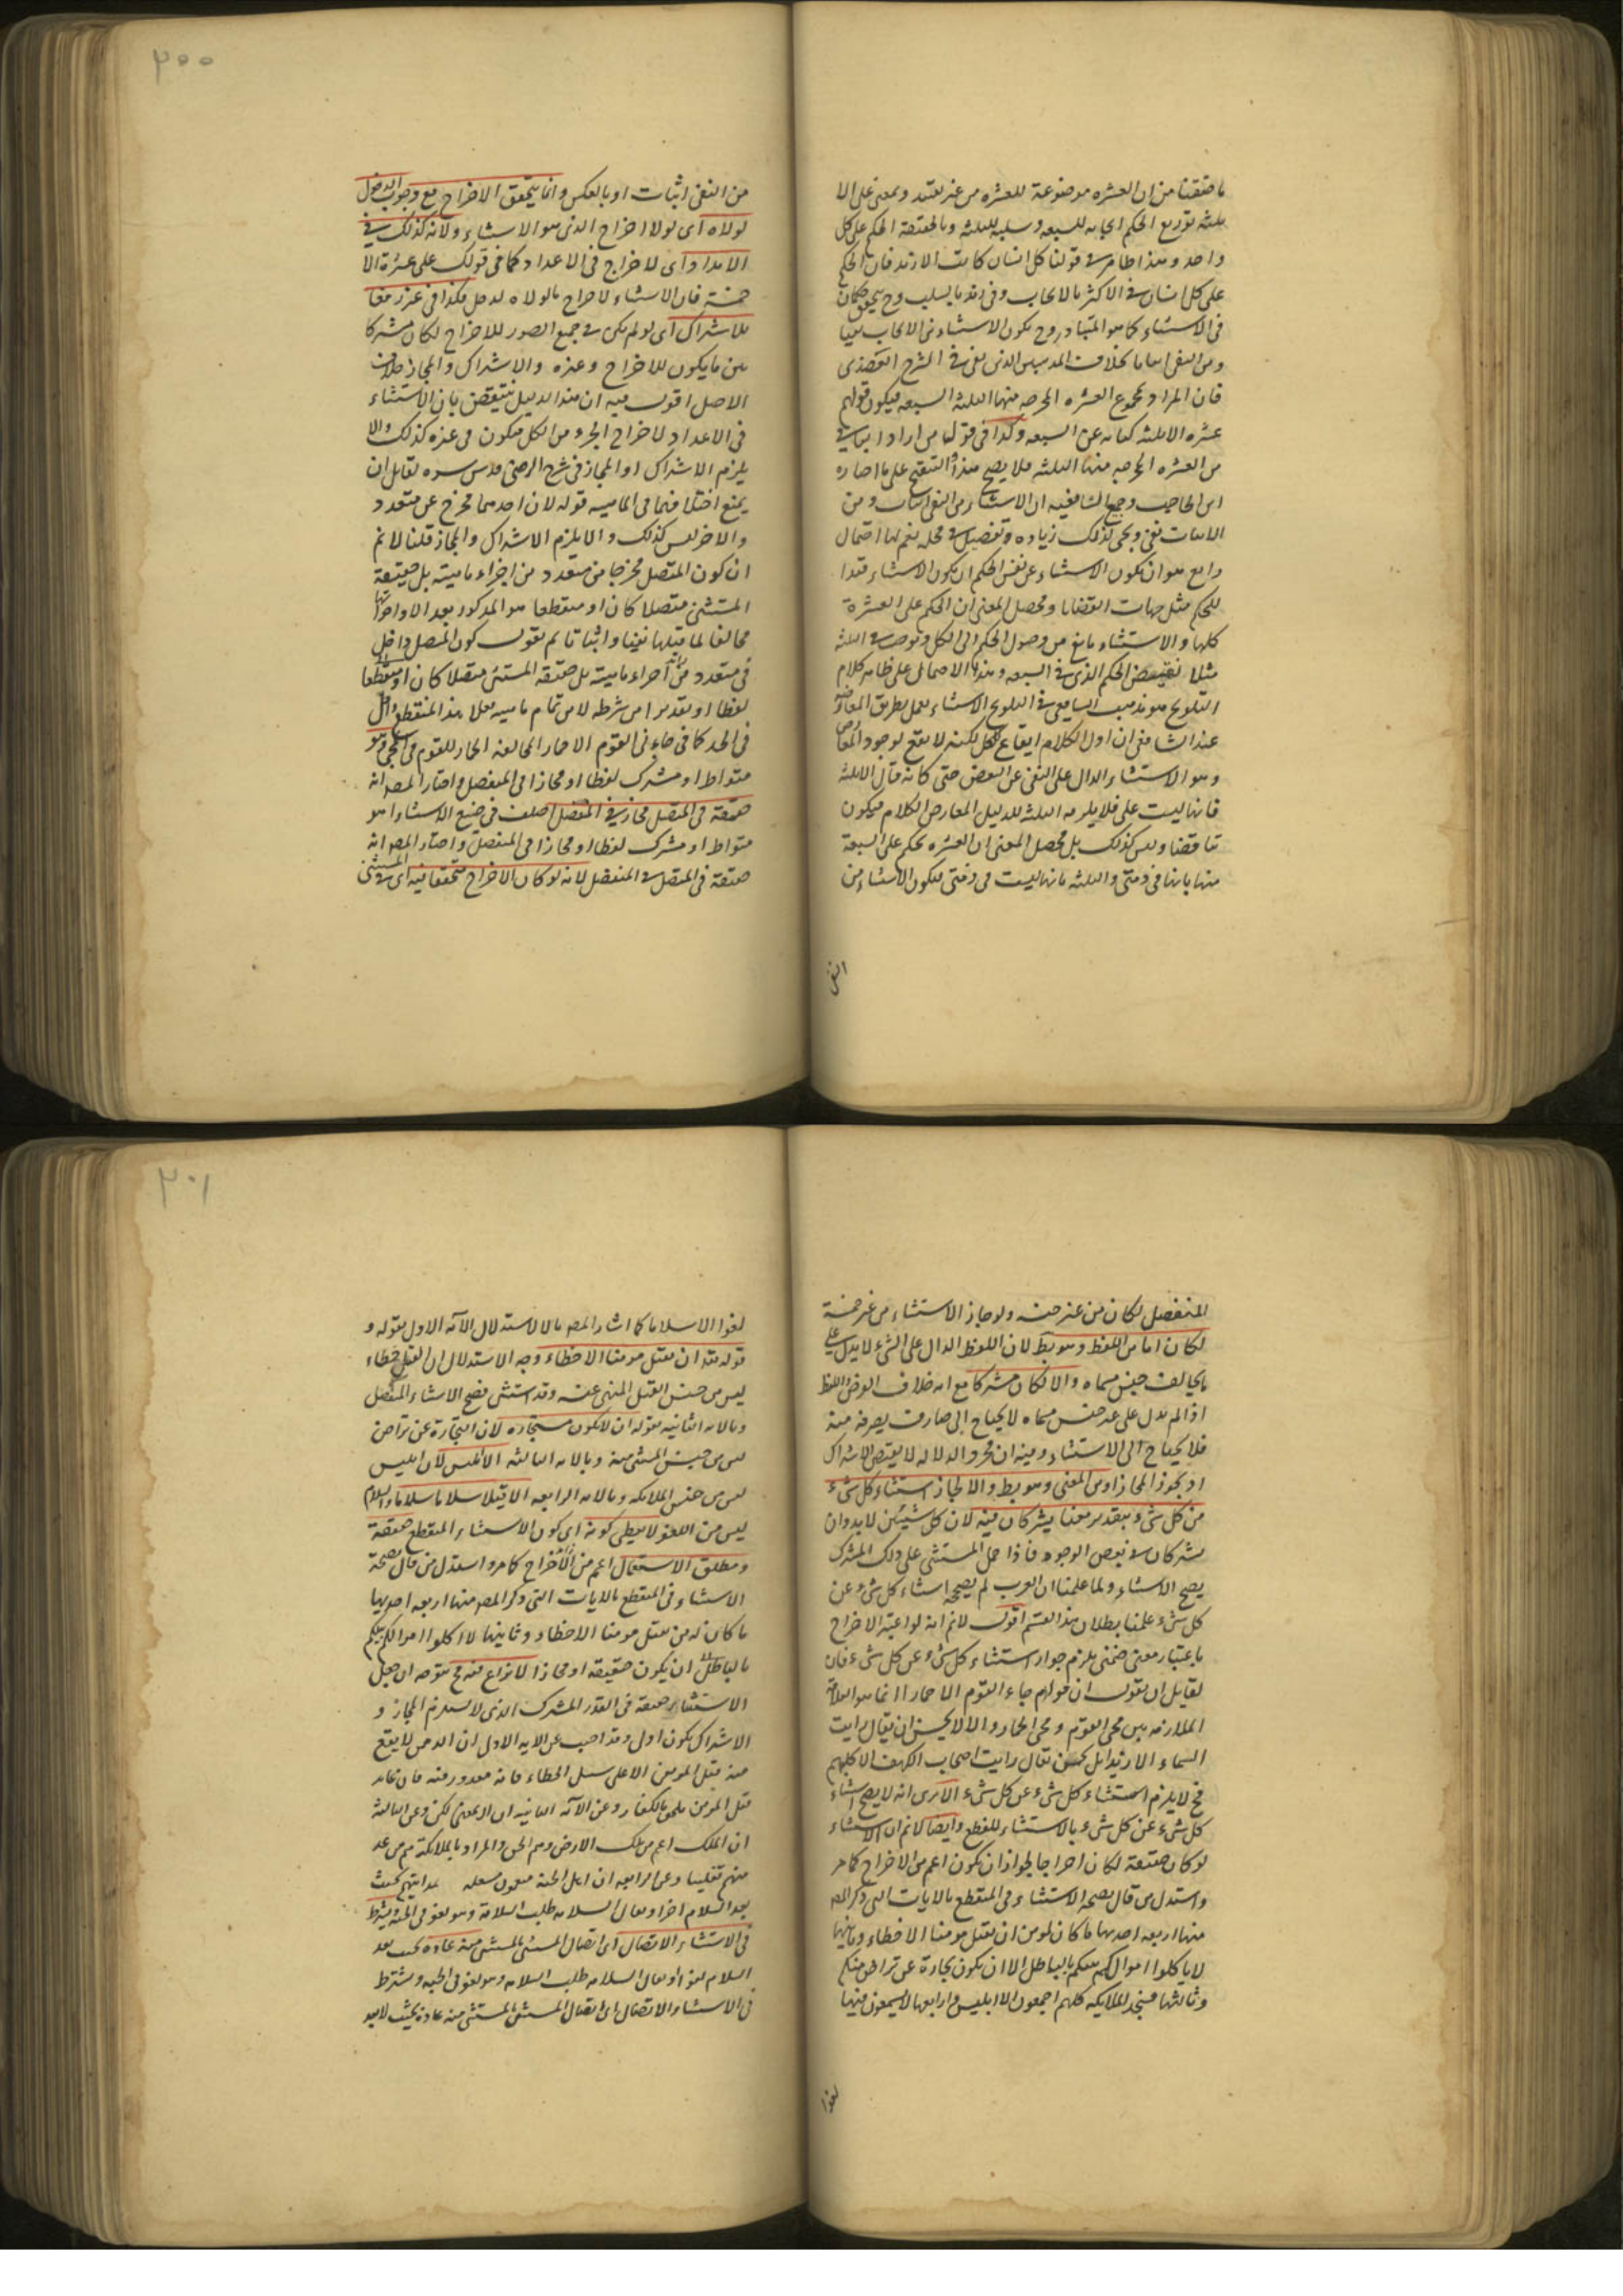 ما حققنا من ان العشره موضوعة للعشره من غير تعدد ومعنى على الا
ثلثه توزيع الحكم ايجابه للسبعه وسلبه للثلثه وبالحقيقة الحكم على كل
واحد وهذا ظاهر في قولنا كل انسان كاتب الا زيد فان الحكم
على كل انسان في الاكثر بالايجاب وفي زيد بالسلب وح يتحقق حكمان
في الاستثناء كما هو المتبادر وح يكون الاستثناء من الايجاب نفيا
ومن النفي ايجابا بخلاف المذهبين الذي في الشرح العضدى
فان المراد بمجموع العشره المخرجه منها الثلثه السبعه فيكون قولهم
عشره الا ثلثه كنايه عن السبعه وكذا في قول من اراد
من العشره المخرجه منها الثلثه فلا يصح هذا التنقيح على ما اختاره
ابن الحاجب وجميع الشافعيه ان الاستثناء من النفي اثبات ومن
الاثبات نفي ويجئ لذلك زياده وتفصيل في محله نعم لها احتمال
رابع هو ان يكون الاستثناء عن نفس الحكم ان يكون الاستثناء قيدا
للحكم مثل جهات القضايا ومحصل المعنى ان الحكم على العشرة
كلها والاستثناء مانع من وصول الحكم الى الكل وتوصف الثلثه
مثلا بنقيض الحكم الذي في السبعه وهذا الاحتمال على ظاهر كلام
التلويح هو مذهب الشافعي في التلويح الاستثناء يعمل بطريق المعارضه
عند الشافعي ان اول الكلام ايقاع للكل لكنه لا يقع لوجود المعارض
وهو الاستثناء الدال على النفي عن البعض حتى كانه قال الا ثلثه
فانها ليست على فلا يلزمه الثلثه للدليل المعارض لاول الكلام فيكون
تناقضا وليس كذلك بل محصل المعنى ان العشره يحكم على السبعة
منها بانها في ذمتي والثلثه بانها ليست في ذمتي فيكون الاستثناء من
النفي
٢٠٠
من النفي اثبات او بالعكس وانما يتحقق الاخراج مع وجوب الدخول
لولاه اى لولا اخراج الذي هو الاستثناء ولانه كذلك في
الاعداد اى لاخراج في الاعداد كما في قولك على عشرة الا
خمسة فان الاستثناء لاخراج ما لولاه لدخل فكذا في غيره دفعا
للاشتراك اى لو لم يكن في جميع الصور للاخراج لكان مشتركا
بين ما يكون للاخراج وغيره والاشتراك والمجاز خلاف
الاصل اقول فيه ان هذا الدليل ينتقض بان الاستثناء
في الاعداد لاخراج الجزء من الكل فيكون في غيره كذلك والا
يلزم الاشتراك او المجاز في شرح الرضى قدس سره لقائل ان
يمنع اختلافهما في الماهيه قوله لان احدهما مخرج عن متعدد
والاخر ليس كذلك والا يلزم الاشتراك والمجاز قلنا لا نم
ان كون المتصل مخرجا من متعدد من اجزاء ماهيته بل حقيقة
المستثنى متصلا كان او منقطعا هو المذكور بعد الا واخواتها
مخالفا لما قبلها نفيا واثباتا ثم نقول كون المتصل داخل
في متعدد من اجزاء ماهيته بل حقيقة المستثنى متصلا كان او منقطعا
لفظا او تقديرا من شرطه لا من تمام ماهيه فعلا هذا المنقطع داخل
في الحد كما في جاءني القوم الا حمار المخالفه الحمار للقوم في المجئ وهو
متواطا او مشترك لفظا او مجازا في المنفصل واختار المصر انه
حقيقة في المتصل مجاز في المنفصل اختلف في صيغ الاستثناء هو
متواطا او مشترك لفظا او مجازا في المنفصل واختار المصر انه
حقيقة في المتصل في المنفصل لانه لو كان الاخراج متحققا فيه اى في المستثنى
المنفصل لكان من غير جنسه ولو جاز الاستثناء من غير جنسه
لكان اما من اللفظ وهو بط لان اللفظ الدال على الشئ لا يدل على
ما يخالف جنس مسماه والا لكان مشتركا مع انه خلاف الفرض واللفظ
اذا لم يدل على غير جنس مسماه لا يحتاج الى صارف يصرفه عنه
فلا يحتاج الى الاستثناء وفيه ان مجرد الدلاله لا يقتضى الاشتراك
اذ يجوز المجاز او من المعنى وهو بط والا لجاز استثناء كل شئ
من كل شئ بتقدير معنا يشتركان فيه لان كل شيئين لا بد وان
يشتركان في بعض الوجوه فاذا حمل المستثنى على ذلك المشترك
يصح الاستثناء ولما علمنا ان العرب لم يصحح استثناء كل شئ عن
كل شئ علمنا بطلان هذا القسم اقول لا نم انه لو اعتبر الاخراج
باعتبار معنى ضمنى يلزم جواز استثناء كل شئ عن كل شئ فان
لقائل ان يقول ان قولهم جاء القوم الا حمارا انما هو لعلاقة
الملازمه بين مجئ القوم ومجئ الحمار والا لا يحسن ان يقال رايت
السماء الا زيدا بل يحسن يقال رايت اصحاب الكهف الا كلبهم
فح لا يلزم استثناء كل شئ عن كل شئ الا ترى انه لا يصح استثناء
كل شئ عن كل شئ بالاستثناء المنقطع وايضا لا نم ان الاستثناء
لو كان حقيقة لكان اخراجا لجواز ان يكون اعم من الاخراج كما مر
واستدل من قال بصحه الاستثناء في المنقطع بالايات التي ذكر المصر
منها اربعه احديها ما كان لمومن ان يقتل مومنا الا خطاء وثانيها
لا ياكلوا اموالكم بينكم بالباطل الا ان يكون تجارة عن تراض منكم
وثالثها فسجد الملايكه كلهم اجمعون الا ابليس ورابعها لا يسمعون فيها
لغوا
٢٠١
لغوا الا سلاما كما اشار المصر بالاستدلال الآيه الاول بقوله و
قوله تعه ان يقتل مومنا الا خطاء وجه الاستدلال ان القتل خطاء
ليس من جنس القتل المنهى عنه وقد استثنى فصح الاستثناء المنفصل
وبالايه الثانيه بقوله ان لا يكون تجاره لان التجارة عن تراض
ليس من جنس المستثنى منه وبالايه الثالثه الا ابليس لان ابليس
ليس من جنس الملائكه وبالايه الرابعه الا قيلا سلاما سلاما والسلام
ليس من اللغو لا يعطى كونه اى كون الاستثناء المنقطع حقيقة
ومطلق الاستعمال اعم من الاخراج كما مر واستدل من قال بصحة
الاستثناء في المنقطع بالايات التي ذكر المصر منها اربعه احديها
ما كان لمومن يقتل مومنا الا خطاء وثانيها لا تاكلوا اموالكم بينكم
بالباطل الا ان يكون حقيقة او مجازا لا نزاع فيه فح نتوجه ان جعل
الاستثناء حقيقة في القدر المشترك الذي لا يستلزم المجاز و
الاشتراك يكون اولى وقد اجيب عن الايه الاولى ان المومن لا يقع
منه قتل المومن الا على سبيل الخطاء فانه معذور فيه فان عامد
قتل المومن ملحق بالكفار وعن الآيه الثانيه ان الا بمعنى لكن وعن الثالثه
ان الملك اعم من ملك الارض وهم الجن والمراد بالملائكه هم من عد
منهم تغليبا وعن الرابعه ان اهل الجنة
بعد السلام اخرا وبقال السلامه طلب السلامة وهو لغو في الجنه ويشترط
في الاستثناء الاتصال اى اتصال المستثنى بالمستثنى منه عادة بحيث يعد
السلام لغوا وبقال السلامه طلب السلامه وهو لغو في الجنه ويشترط
في الاستثناء الاتصال اى اتصال المستثنى بالمستثنى منه عادة بحيث لا يعد